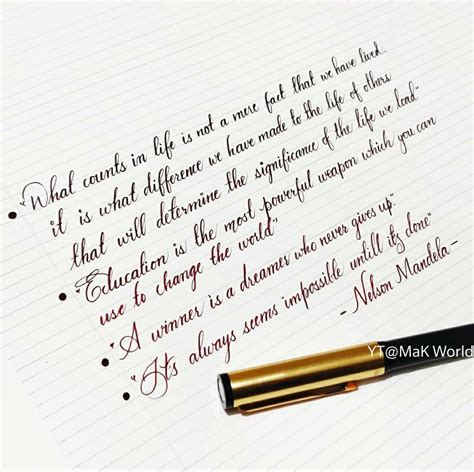 • "What counts in life is not a mere fact that we have lived.
it is what difference we have made to the life of others
that will determine the significance of the life we lead"
• "Education is the most powerful weapon which you can
use to change the world"
• "A winner is a dreamer who never gives up."
• "It's always seems impossible untill its done"
- Nelson Mandela -
YT@MaK World